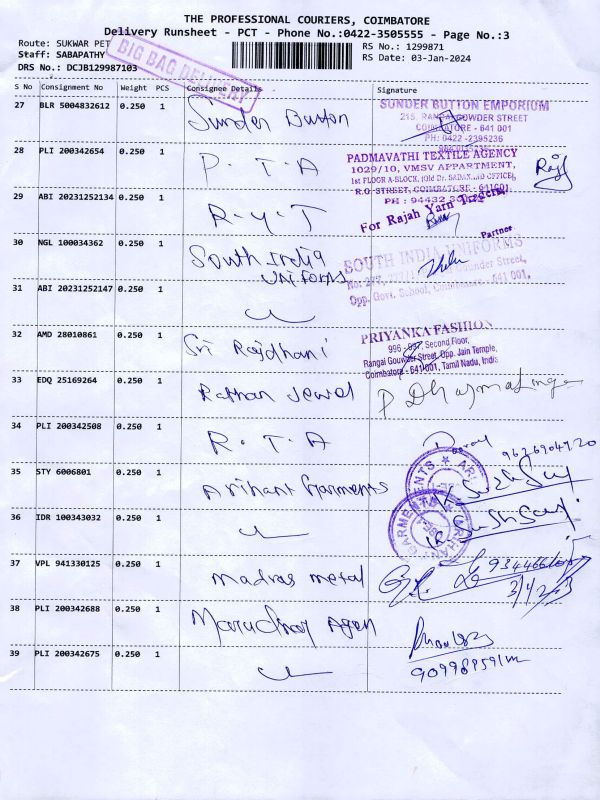 THE PROFESSIONAL COURIERS, COIMBATORE
Delivery Runsheet - PCT - Phone No.:0422-3505555 - Page No.:3
Route: SUKWAR PET
BIG BAG DELIVERY
RS No.: 1299871
Staff: SABAPATHY
RS Date: 03-Jan-2024
DRS No.: DCJB129987103
S No Consignment No Weight PCS Consignee Details Signature
27 BLR 5004832612 0.250 1 Sunder Button
SUNDER BUTTON EMPORIUM
215, RANGAI GOWDER STREET
COIMBATORE - 641 001
PH: 0422 -2395236
28 PLI 200342654 0.250 1 P. T. A
PADMAVATHI TEXTILE AGENCY
1029/10, VMSV APPARTMENT,
1st FLOOR A-BLOCK, (Old Dr. SADANAND OFFICE),
R.G. STREET, COIMBATORE - 641001.
29 ABI 20231252134 0.250 1 R. Y. T
For Rajah Yarn Traders
Partner
30 NGL 100034362 0.250 1 South India
Uniforms
SOUTH INDIA UNIFORMS
Opp. Govt. School, Coimbatore - 641 001,
31 ABI 20231252147 0.250 1
32 AMD 28010861 0.250 1 Sri Rajdhani
PRIYANKA FASHION
996 - 997, Second Floor,
Rangai Gouwder Street, Opp. Jain Temple,
Coimbatore - 641 001, Tamil Nadu, India
33 EDQ 25169264 0.250 1 Rathan Jewel
P Dharmalinga
34 PLI 200342508 0.250 1 R. T. A
35 STY 6006801 0.250 1 Arihant Garments
36 IDR 100343032 0.250 1
37 VPL 941330125 0.250 1 Madras metal
38 PLI 200342688 0.250 1
39 PLI 200342675 0.250 1